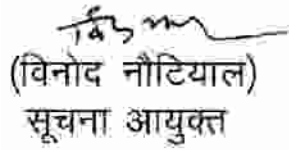 (विनोद नौटियाल)
सूचना आयुक्त